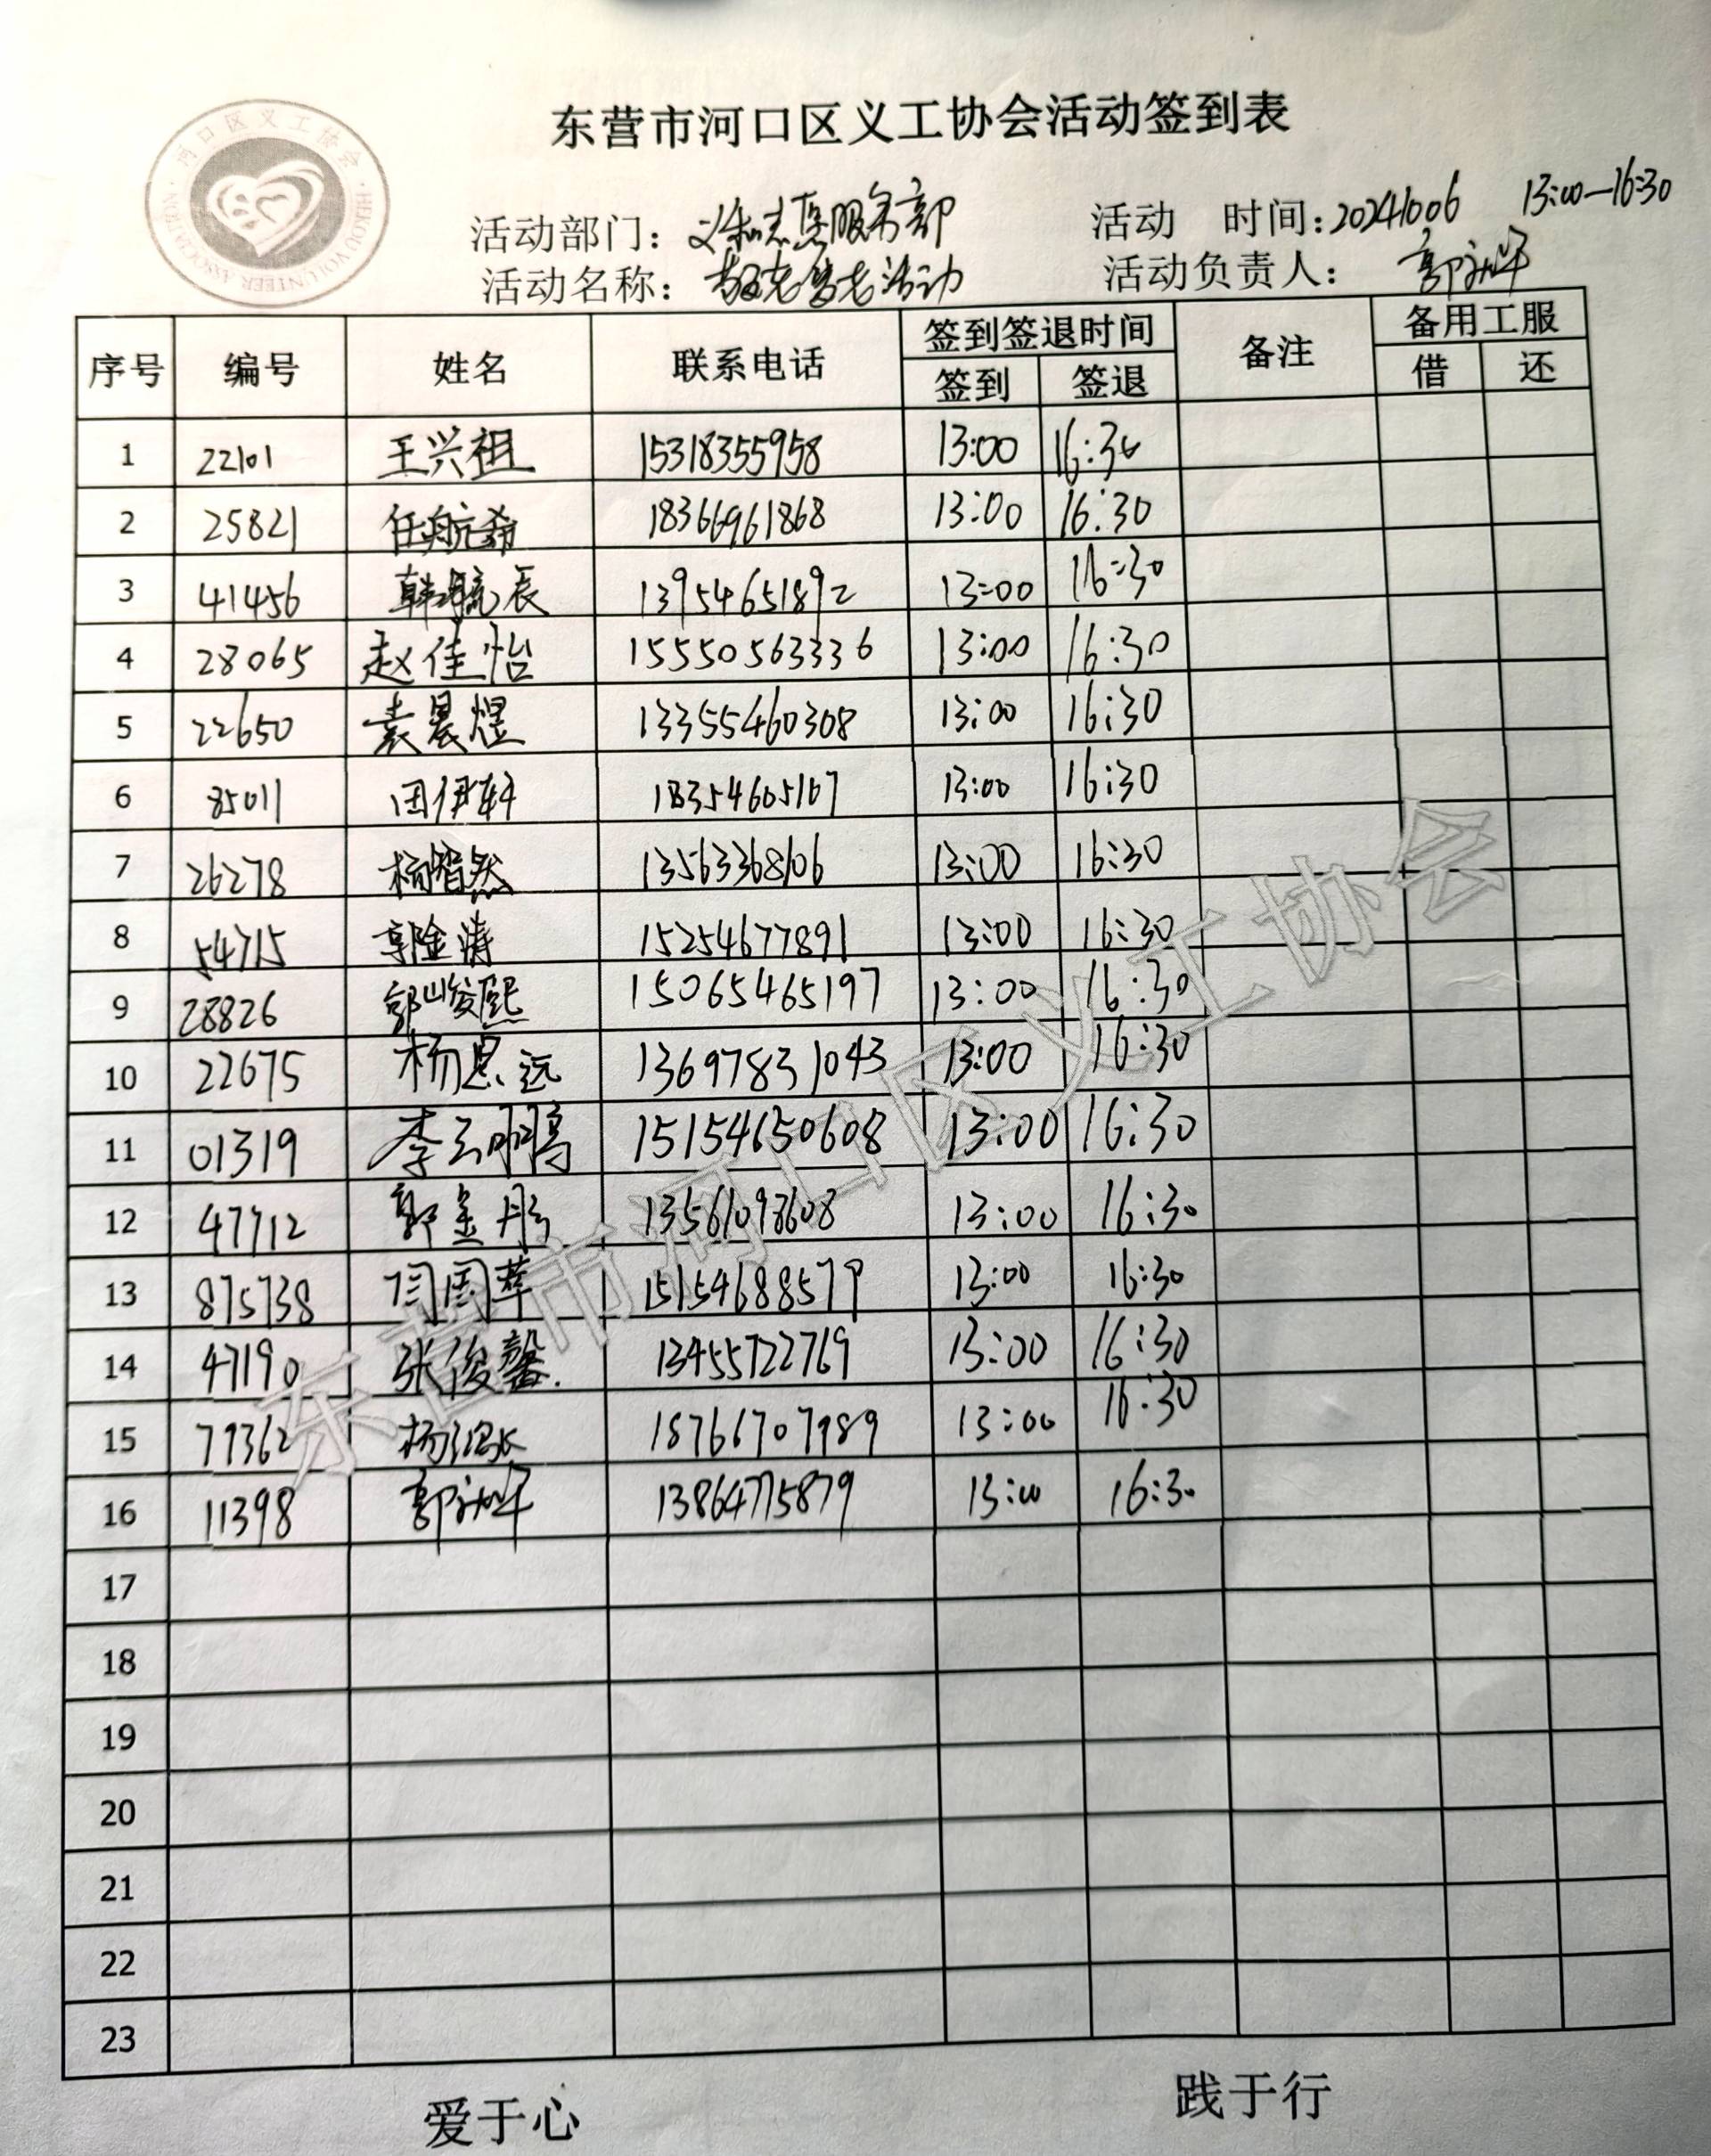 河口区义工协会
HEKOU VOLUNTEER ASSOCIATION
东营市河口区义工协会活动签到表
活动部门：义和志愿服务部 活动 时间：20241006 13:00-16:30
活动名称：敬老爱老活动 活动负责人：郭
序号 编号 姓名 联系电话 签到签退时间 备注 备用工服
签到 签退 借 还
1 22101 王兴祖 15318355958 13:00 16:30
2 25821 任航希 18366961868 13:00 16:30
3 41456 韩毓辰 13954651892 13:00 16:30
4 28065 赵佳怡 15550563336 13:00 16:30
5 22650 袁晨煜 13355460308 13:00 16:30
6 85011 田伊轩 18354605107 13:00 16:30
7 26278 杨皓然 13563368106 13:00 16:30
8 54715 郭金涛 15254677891 13:00 16:30
9 28826 郭峻熙 15065465197 13:00 16:30
10 22675 杨思远 13697831043 13:00 16:30
11 01319 李云鹏 15154650608 13:00 16:30
12 47712 郭金彤 13561098608 13:00 16:30
13 875738 闫周苹 15154688579 13:00 16:30
14 47190 张俊馨 13455722769 13:00 16:30
15 79362 杨 18766707989 13:00 16:30
16 11398 郭 13864775879 13:00 16:30
17
18
19
20
21
22
23
爱于心 践于行
东营市河口区义工协会